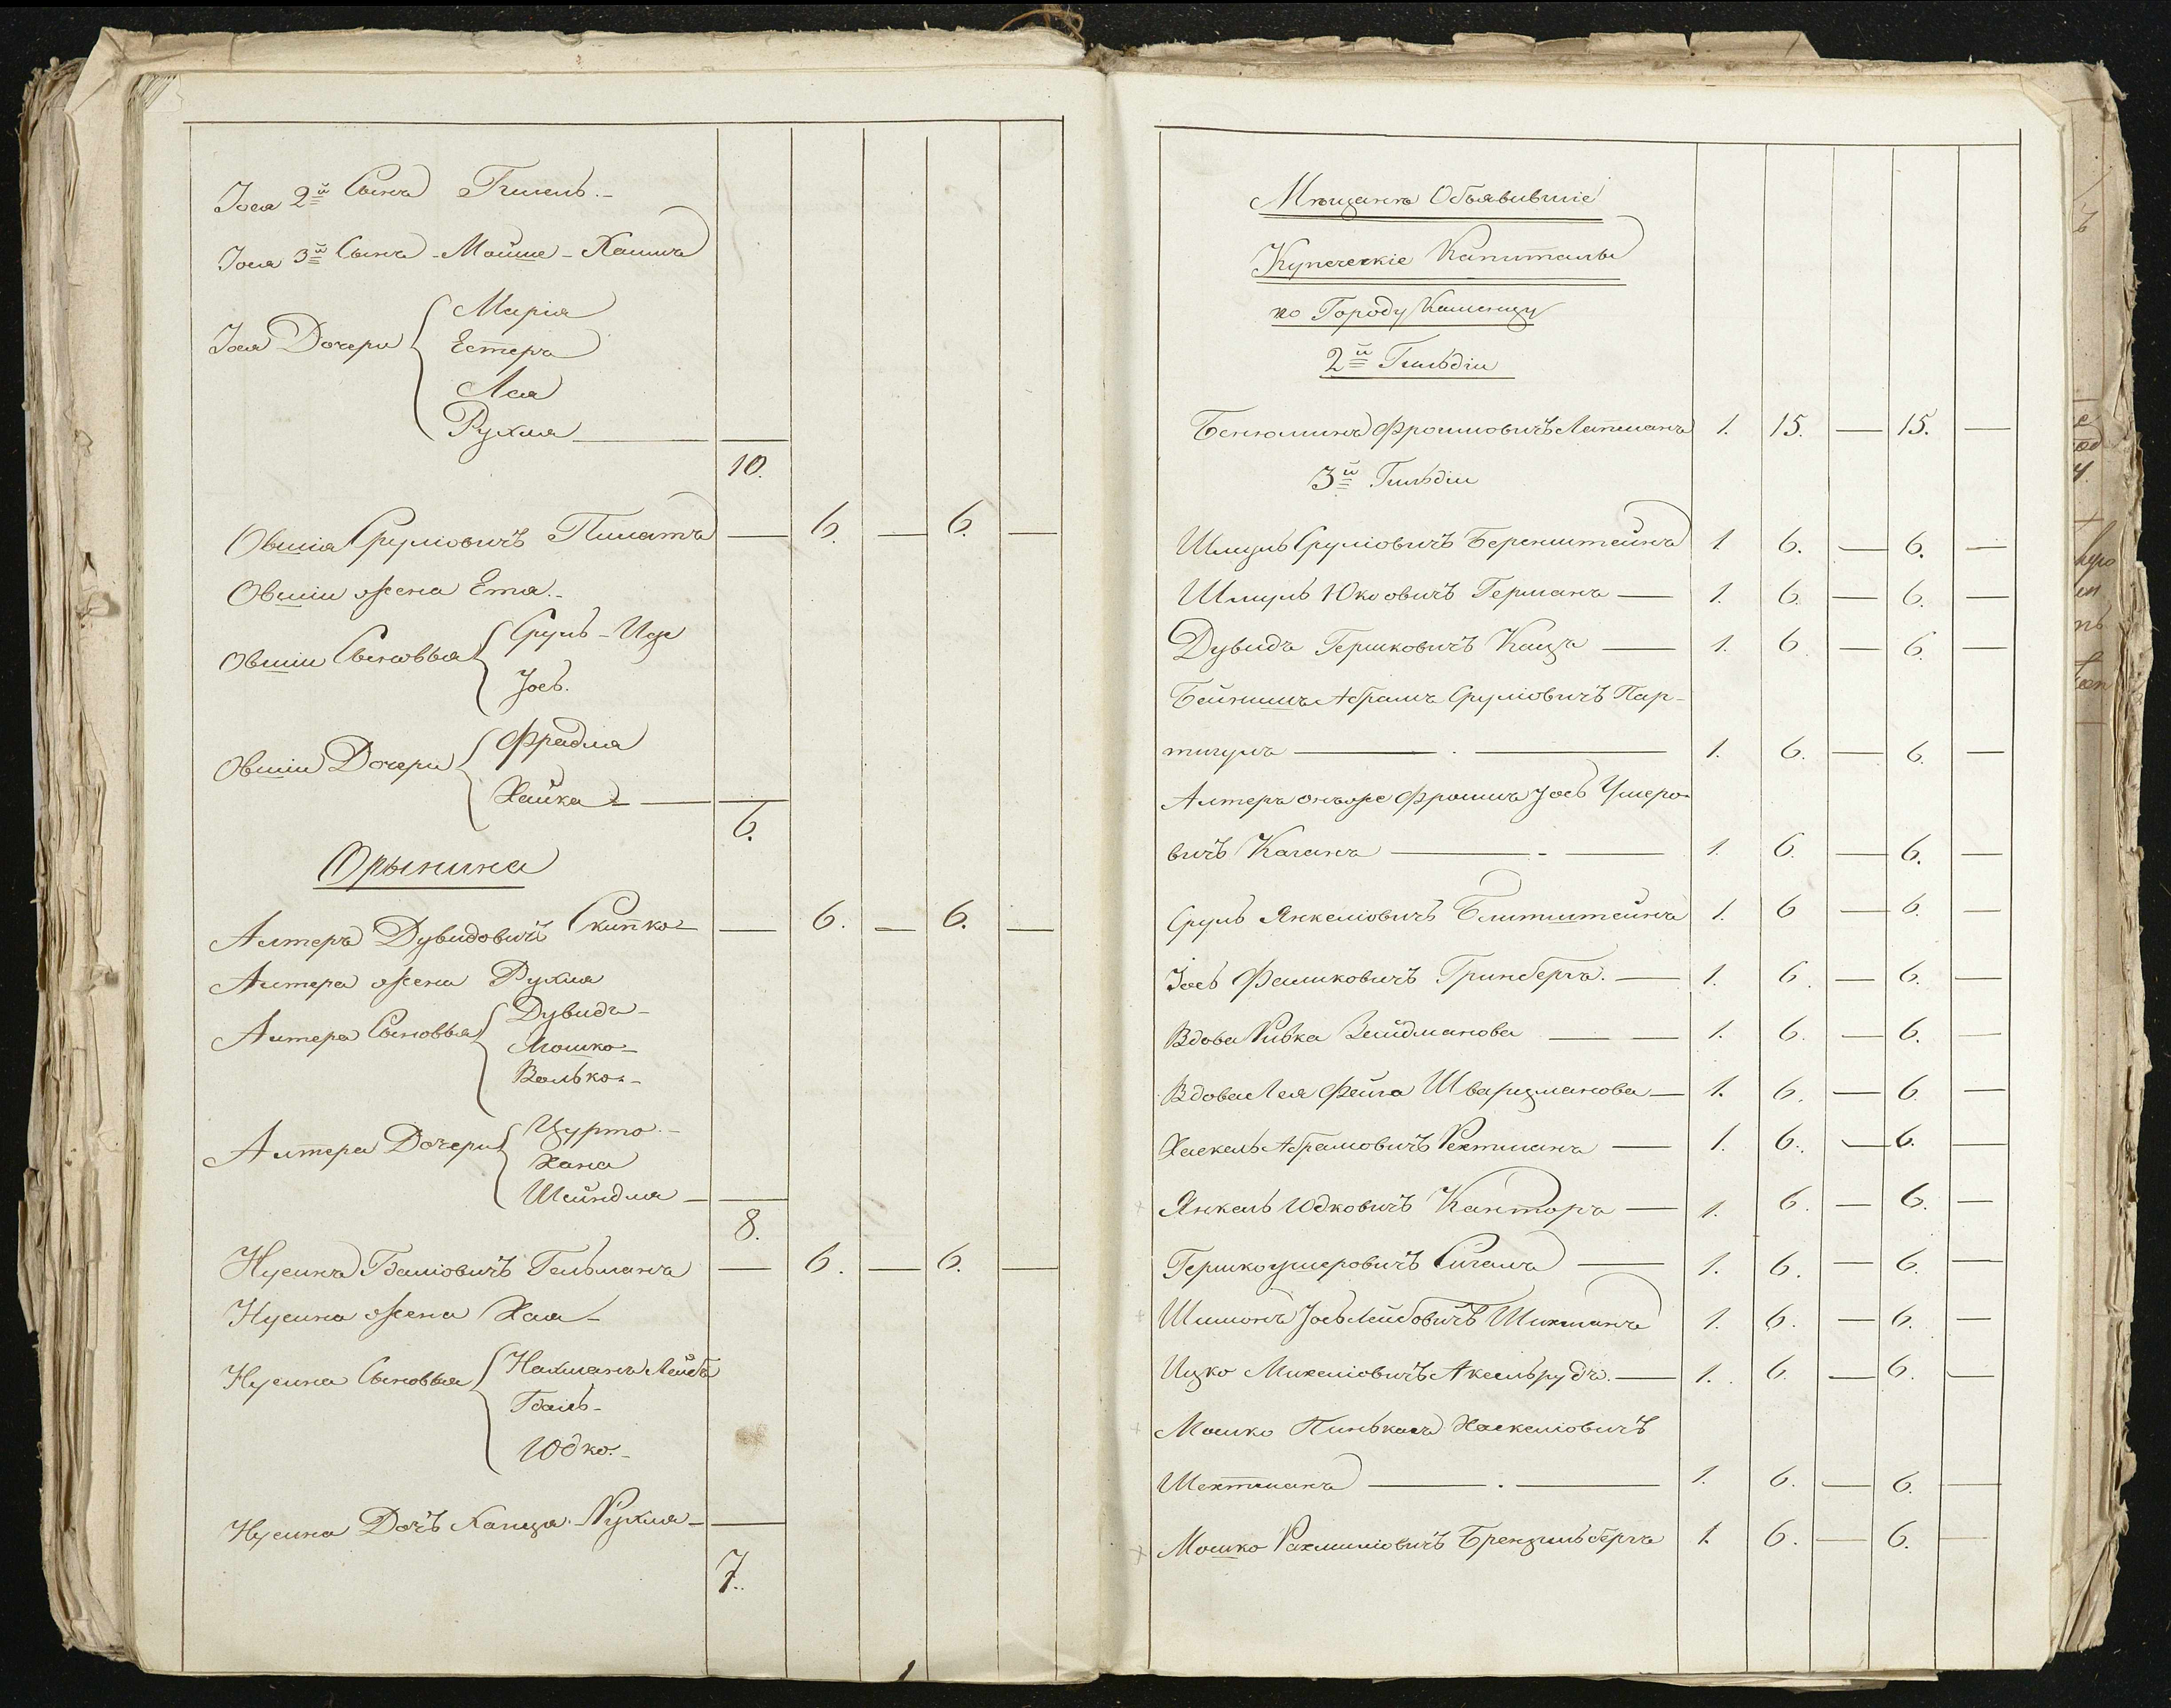 Іося 2й Сынъ Гилель.
Іося 3й Сынъ - Мойше - Хаимъ
Іося Дочери
Марія
Естеръ
Лея
Рухля —
10.
Овшія Сруліовичъ Пилатъ — 6. — 6. —
Овшіи жена Етя.
Овшіи Сыновья
Сруль - Ице
Іось.
Овшіи Дочери
Фрадля
Хайка —
6.
Орынина
Алтеръ Дувидовичъ Скипко — 6. — 6. —
Алтера жена Рухля
Алтера Сыновья
Дувидъ -
Мошко -
Волько. -
Алтера Дочери
Цурто. -
Хана
Шейндля —
8.
Нусинъ Бгаліовичъ Гельманъ — 6. — 6. —
Нусина жена Хая -
Нусина Сыновья
Нахманъ Лейбъ
Юдко. -
Нусина Дочь Ханца - Рухля —
7.
Мѣщанъ Объявившіе
Купеческіе Капиталы
по Городу Каменцу
2й Гильдіи
Бенюминъ Фроимовичъ Лапманъ 1. 15. — 15. —
3й Гильдіи
Шмуль Сруліовичъ Беренштейнъ 1. 6. — 6. —
Шмуль Юкоовичъ Германъ — 1. 6. — 6. —
Дувидъ Гершковичъ Кацъ — 1. 6. — 6. —
Бейнишъ Абрамъ Сруліовичъ Пар-
тигулъ — 1. 6. — 6. —
Алтеръ онъ же Фроимъ Іось Умеро-
вичъ Каганъ — 1. 6. — 6. —
Сруль Янкеліовичъ Блитштейнъ 1. 6 — 6. —
Іось Фаликовичъ Гринбергъ. — 1. 6. — 6. —
Вдова Ривка Вейдманова — 1. 6. — 6. —
Вдова Лея Фейга Шварцманова — 1. 6. — 6. —
Хаскель Абрамовичъ Рехтманъ — 1. 6. — 6. —
Янкель Юдковичъ Канторъ — 1. 6. — 6. —
Гершко Умеровичъ Сигалъ — 1. 6. — 6. —
Шимонъ Іось Лейбовичъ Шихманъ 1. 6. — 6. —
Ицко Михеліовичъ Аксельрудъ. — 1. 6. — 6. —
Мошко Пинькасъ Хаскеліовичъ
Шехтманъ — 1. 6. — 6. —
Мошко Рахмиліовичъ Брензильбергъ 1. 6. — 6. —